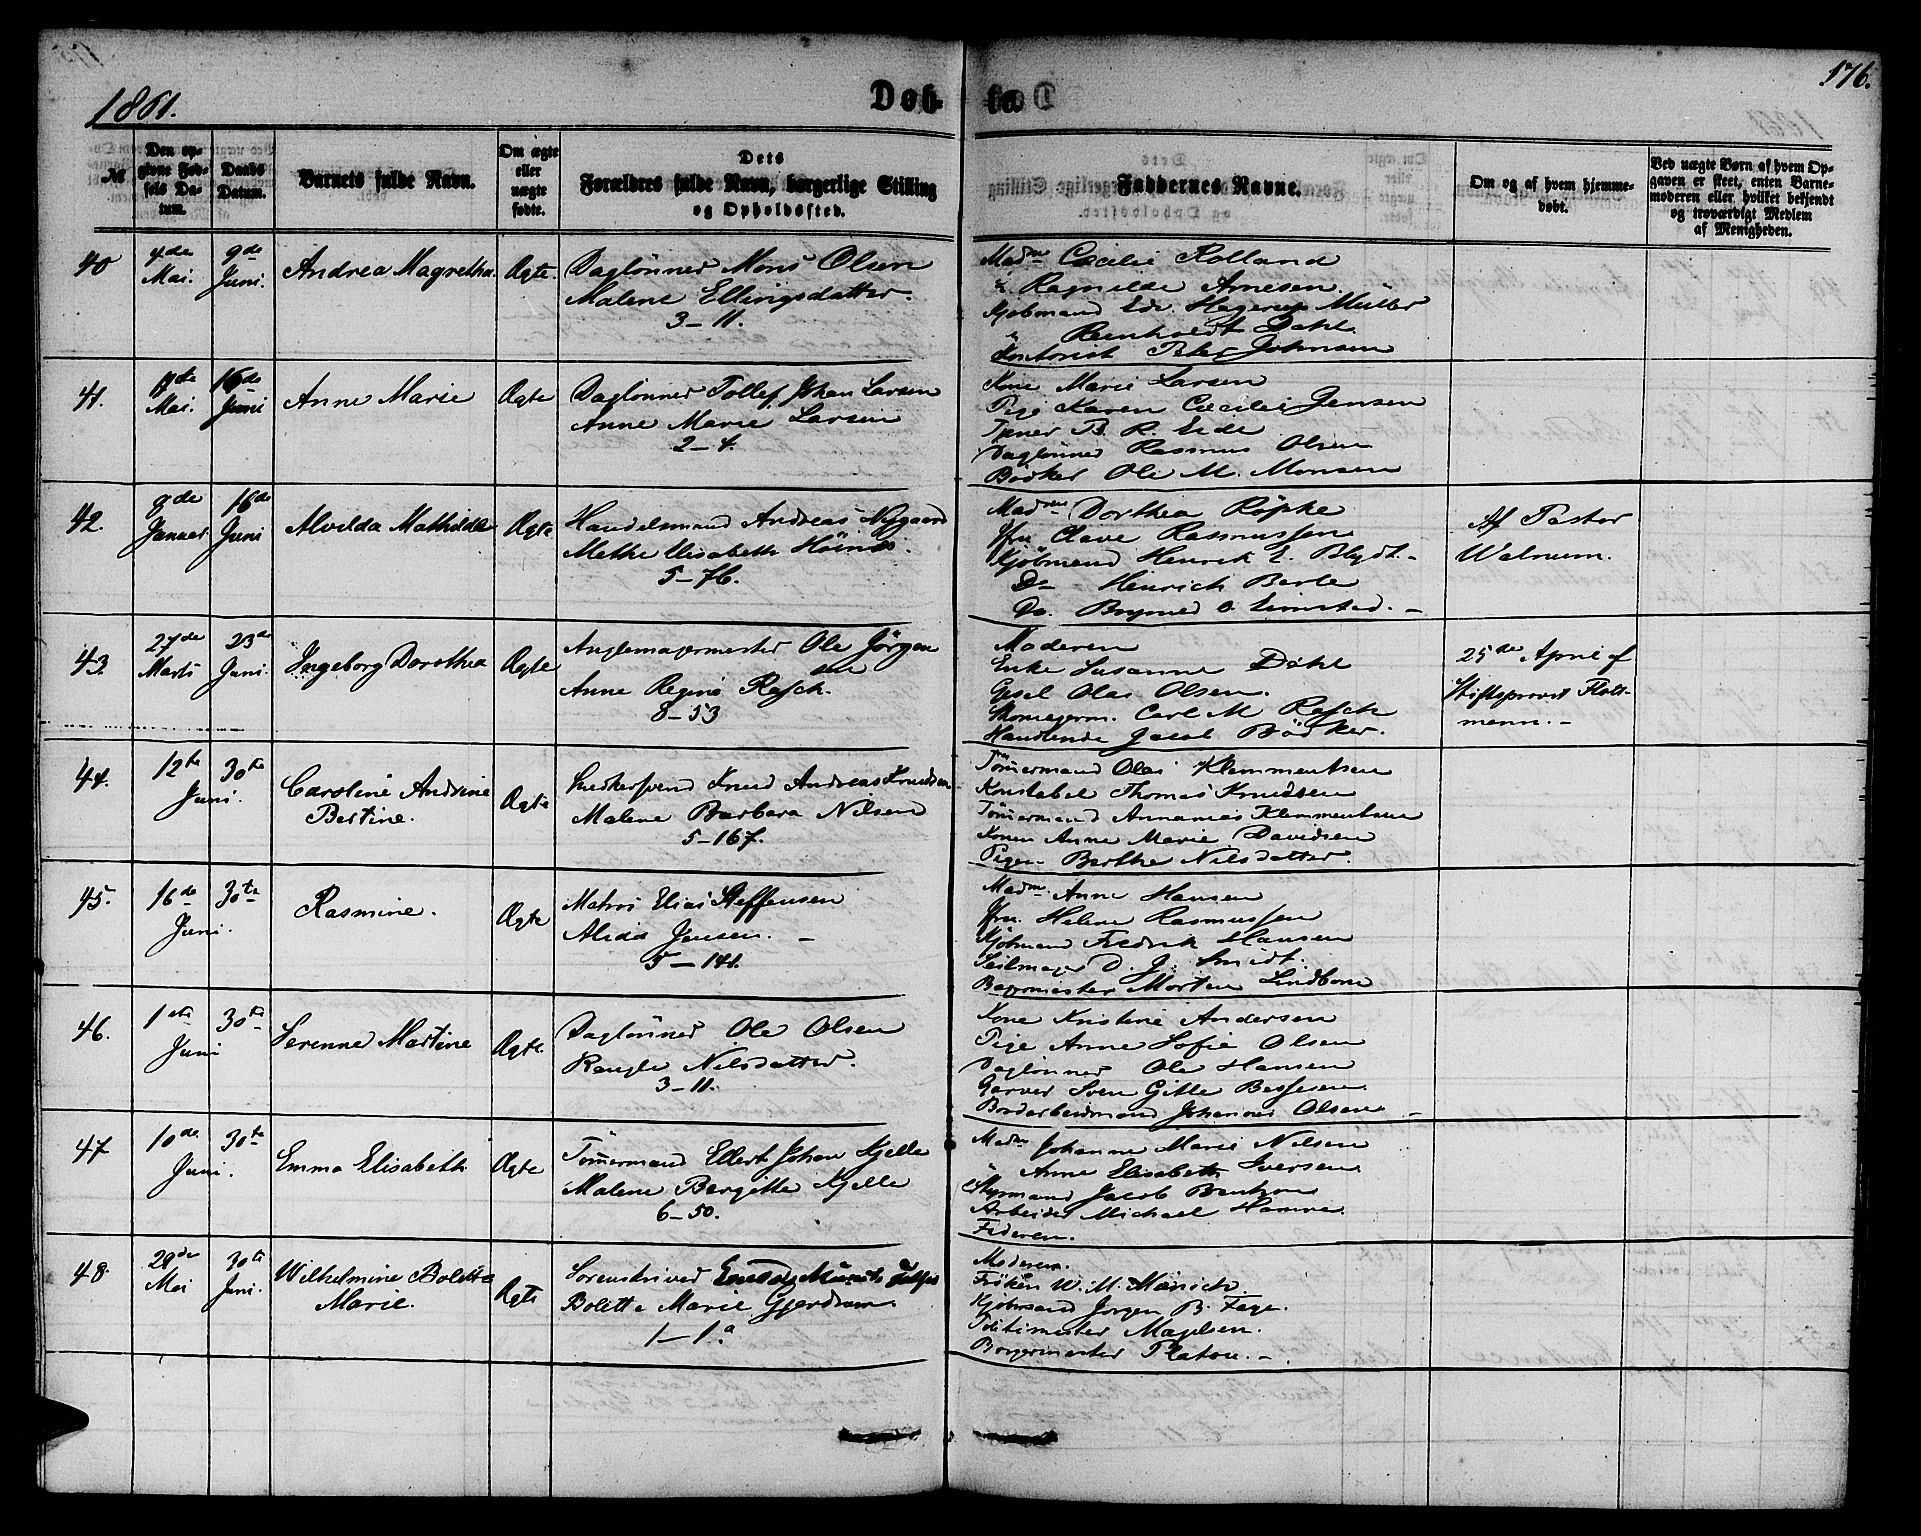 1861.
Døb-
te.
176.
№
Den op-
givne Fød-
sels Da-
tum.
Daabs
Datum.
Barnets fulde Navn.
Om ægte
eller
uægte
fødte.
Dets
Forældres fulde Navn, borgerlige Stilling
og Opholdssted.
Faddernes Navne.
Om og af hvem hjemme-
døbt.
Ved uægte Børn af hvem Op-
gaven er skeet, enten Barne-
moderen eller hvilket bekjendt
og troværdigt Medlem
af Menigheden.
40
4de
Mai.
9de
Juni.
Andrea Magretha
Ægte.
Daglönner Mons Olsen
Malene Ellingsdatter.
3-11.
Madm Cæcilie Rolland
" Ragnilde Arnesen.
Kjøbmand Edv. Hagerup Müller
" Reinholdt Dahl.
Kontorist Peter Johnsen
41.
Mai.
16de
Juni
Anne Marie
Ægte
Daglönner Tollef Johan Larsen
Anne Marie Larsen
2-4.
Kone Marie Larsen
Pige Karen Cæcilie Jensen
B. R. Eide
Daglönner Rasmus Olsen
Bödker Ole M. Monsen
42.
9de
Januar
16de
Juni
Alvilda Mathilde
Ægte
Handelsmand Andreas Nygaard
Methe Elisabeth
5-76.
Madm Dorthea Röpke
Jfru Clave Rasmussen
Kjöbmand Henrik E. Blydt.-
Do Henrich Berle
Do.
Af Pastor
Walnum.
43.
27de
Marts
23de
Juni.
Ingeborg Dorothea
Ægte
Ole Jörgen
sen
Anne Regine Rasch.
8-53
Moderen
Enke Susanne Döhl
Gesel Olai Olsen.
Skomagerm. Carl M Rasch
Handlende Jacob Bödker.
25de April af
Stiftsprovst
mann.-
44.
12te
Juni.
30te
Caroline Andrine
Bertine.
Ægte
Knud Andreas Knudsen
Malene Barbara Nilsen
5-167.
Tömmermand Olai Klemmentsen
Konstabel Thomas Knudsen
Tömmermand Annanias Klemmentsen
Konen Anne Marie Davidsen
Pigen Berthe Nilsdatter.
45.
16de
Juni.
30te
Rasmine.
Ægte
Matros Elias Steffensen
Alida Jensen.-
5-141.
Madm. Anne Hansen
Jfru. Helene Rasmussen
Kjöbmand Fredrik Hansen
Seilmager D. J. Smidt.
Bagermester Morten Lindbom
46.
1ste
Juni
30te
Serenne Martine
Ægte.
Daglönner Ole Olsen
Nilsdatter.
3-11.
Kone Kristine Andersen
Pige Anne Sofie Olsen
Daglönner Ole Hansen
Garver Sven Gitle Bessesen
Johannes Olsen
47.
10de
Juni.
30te
Emma Elisabeth
Ægte
Tömmermand Ellert Johan Kjelle
Malene Bergitte Kjelle
6-50.
Madm Johanne Marie Nilsen
" Anne Elisabeth Iversen
Styrmand Jacob
Arbeider Michael Hamre.
Faderen.
48.
Mai
30te
Juni.
Wilhelmine Bolette
Marie.
Ægte
Sorenskriver
Bolette Marie Gjerdrum.
1-1a
Moderen.
Fröken W. M. Münich.
Kjöbmand Jörgen B. Faye.
Politimester Magelsen.
Borgermester Platou.-.